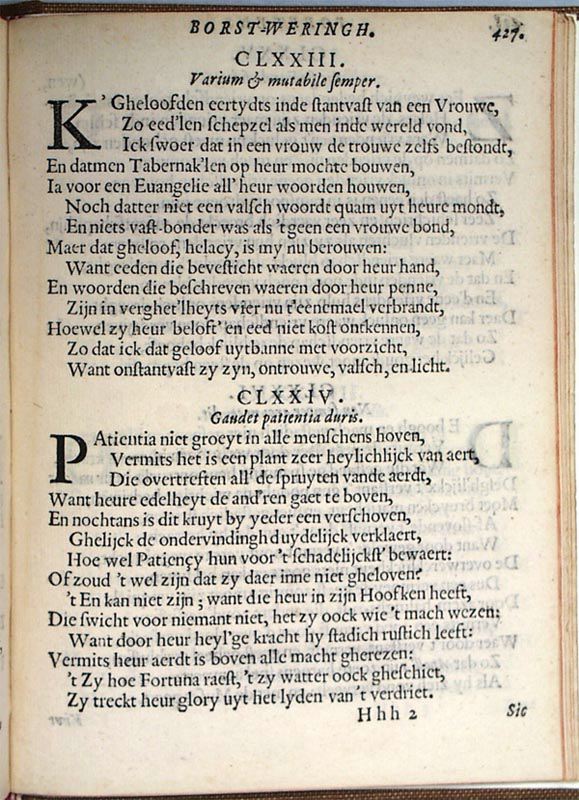 BORST-WERINGH. 427.
CLXXIII.
Varium & mutabile semper.
K' Gheloofden eertydts inde stantvast van een Vrouwe,
Zo eed'len schepzel als men inde wereld vond,
Ick swoer dat in een vrouw de trouwe zelfs bestondt,
En datmen Tabernak'len op heur mochte bouwen,
Ia voor een Euangelie all' heur woorden houwen,
Noch datter niet een valsch woordt quam uyt heure mondt,
En niets vast-bonder was als 't geen een vrouwe bond,
Maer dat gheloof, helacy, is my nu berouwen:
Want eeden die bevesticht waeren door heur hand,
En woorden die beschreven waeren door heur penne,
Zijn in verghet'lheyts vier nu t'eenemael verbrandt,
Hoewel zy heur belost' en eed niet kost ontkennen,
Zo dat ick dat geloof uytbanne met voorzicht,
Want onstantvast zy zyn, ontrouwe, valsch, en licht.
CLXXIV.
Gaudet patientia duris.
PAtientia niet groeyt in alle menschens hoven,
Vermits het is een plant zeer heylichlijck van aert,
Die overtresten all' de spruyten vande aerdt,
Want heure edelheyt de and'ren gaet te boven,
En nochtans is dit kruyt by yeder een verschoven,
Ghelijck de ondervindingh duydelijck verklaert,
Hoe wel Patiençy hun voor 't schadelijckst' bewaert:
Of zoud 't wel zijn dat zy daer inne niet gheloven?
't En kan niet zijn; want die heur in zijn Hoofken heeft,
Die swicht voor niemant niet, het zy oock wie 't mach wezen:
Want door heur heyl'ge kracht hy stadich rustich leeft:
Vermits heur aerdt is boven alle macht gherezen:
't Zy hoe Fortuna raest, 't zy watter oock gheschiet,
Zy treckt heur glory uyt het lyden van 't verdriet.
Hhh 2 Sic